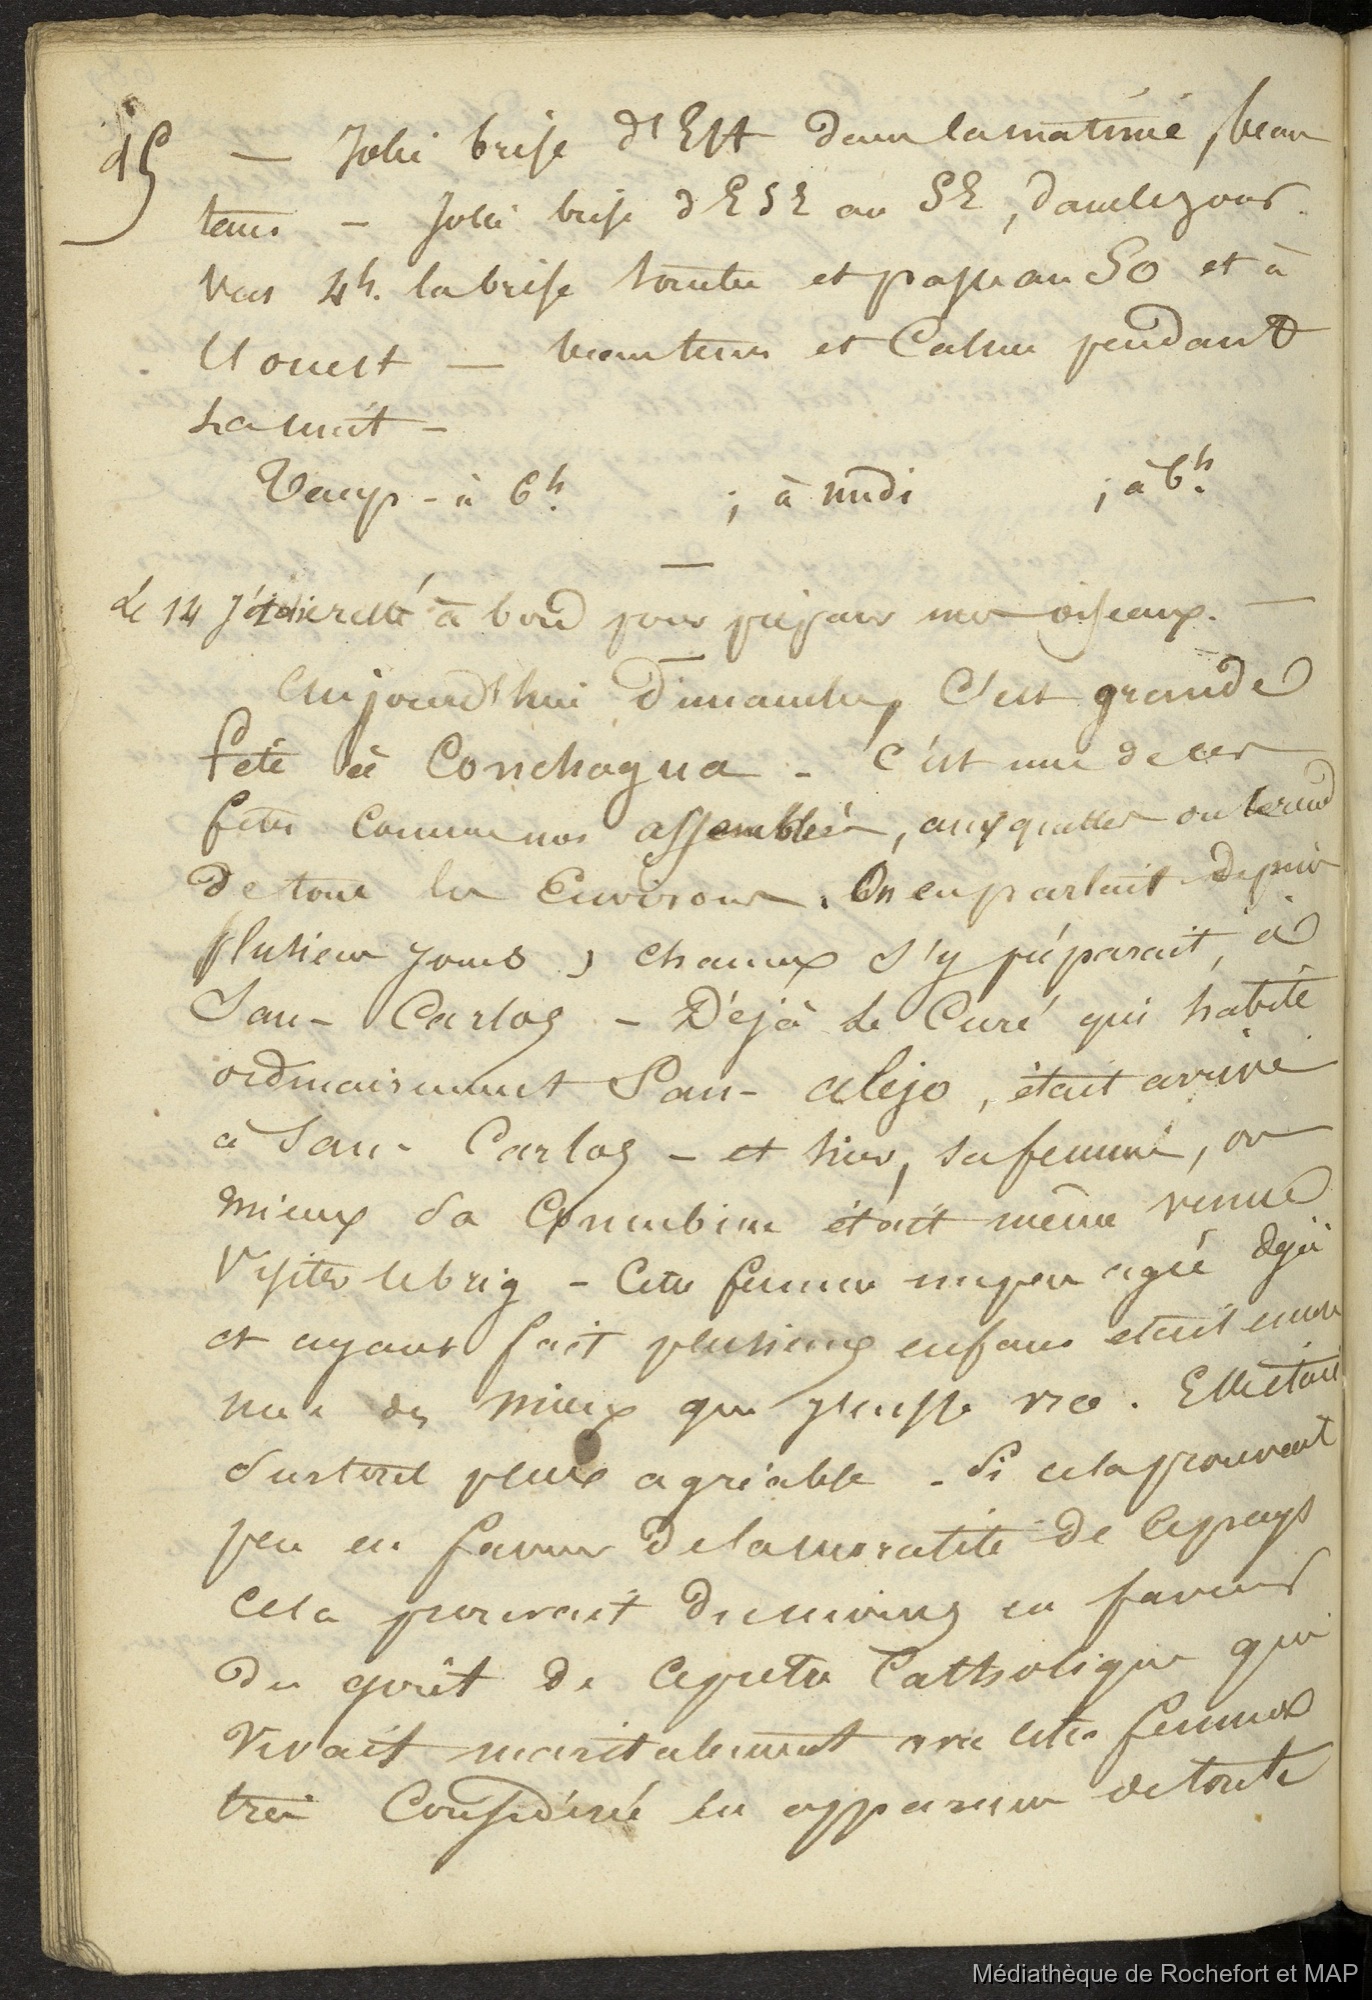 15 — Jolie brise d'Est dans la matinée, beau
tems — Jolie brise d'ESE au SE, dans le jour.
Vers 4h. la brise tombe et passe au SO et à
l'ouest — beau tems et Calme pendant
La nuit —
Temp - à 6h. ; à midi ; à 6h.
—
Le 14 j'étais resté à bord pour préparer mes oiseaux. —
—
Aujourd'hui Dimanche, C'est grande
fête à Conchagua - C'est une de ces
fêtes comme nos assemblées, auxquelles on se rend
de tous les Environs. On en parlait depuis
plusieurs jours, chacun s'y préparait, à
San-Carlos - Déjà le Curé qui habite
ordinairement San-alejo, était arrivé
à San-Carlos - et hier, sa femme, ou
mieux sa Concubine était même venue
Visiter le brig - Cette femme un peu agée déjà
et ayant fait plusieurs enfans était encore
une des mieux que j'eusse vu. Elle était
surtout plus agréable - Si cela prouvait
peu en faveur de la moralité de ce pays
cela prouvait du moins en faveur
du goût de ce prêtre Catholique qui
vivait maritalement avec cette femme
très Considérée en apparence de toute
Médiathèque de Rochefort et MAP